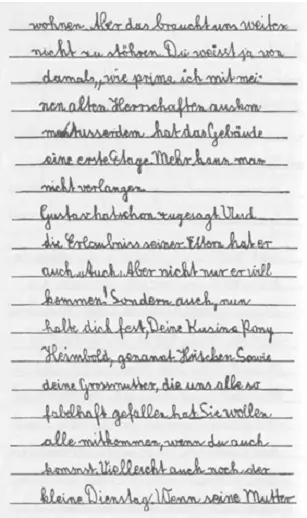 wohnen. Aber das braucht uns weiter
nicht zu stöhren. Du weisst ja von
damals, wie prima ich mit mei-
nen alten Herrschaften auskom
me Ausserdem hat das Gebäude
eine erste Etage. Mehr kann man
nicht verlangen
Gustav hat schon zugesagt Und
die Erlaubniss seiner Eltern hat er
auch. Auch. Aber nicht nur er will
kommen! Sondern auch, nun
halte dich fest, Deine Kusine Pony
Heimbold, genannt Hütchen Sowie
deine Grossmutter, die uns alle so
fabelhaft gefallen hat Sie wollen
alle mitkommen, wenn du auch
kommst. Vielleicht auch noch der
kleine Dienstag. Wenn seine Mutter